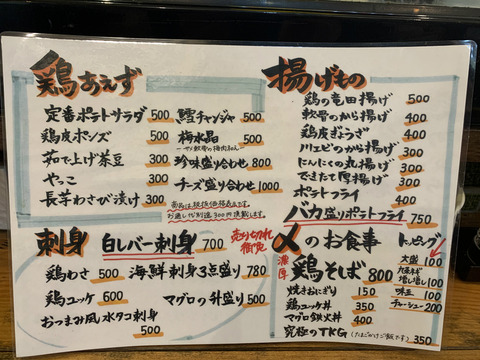 鶏あえず
定番ポテトサラダ 500
鶏皮ポンズ 500
茹で上げ茶豆 300
やっこ 300
長芋わさび漬け 300
鱈チャンジャ 500
梅水晶 500
珍味盛り合わせ 800
チーズ盛り合わせ 1000
商品は税抜価格表示です。
お通し代別途300円頂戴します。
揚げもの
鶏の竜田揚げ 500
軟骨のから揚げ 400
鶏皮ぎょうざ 400
川エビのから揚げ 300
にんにくの丸揚げ 300
できたて厚揚げ 300
ポテトフライ 400
バカ盛りポテトフライ 750
刺身
白レバー刺身 700
売り切れ御免
鶏わさ 500
海鮮刺身3点盛り 780
鶏ユッケ 600
マグロの舟盛り 500
おつまみ風水タコ刺身
500
〆のお食事
濃厚 鶏そば 800
焼きおにぎり 150
鶏ユッケ丼 350
マグロ鉄火丼 400
究極のTKG (たまごかけご飯です) 350
トッピング
大盛 100
増し増し 100
味玉 100
チャーシュー 200